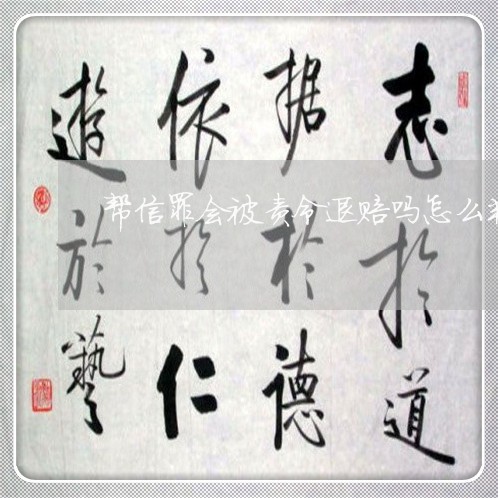 志於道
据於德
依於仁
遊於藝
帮信罪会被责令退赔吗怎么